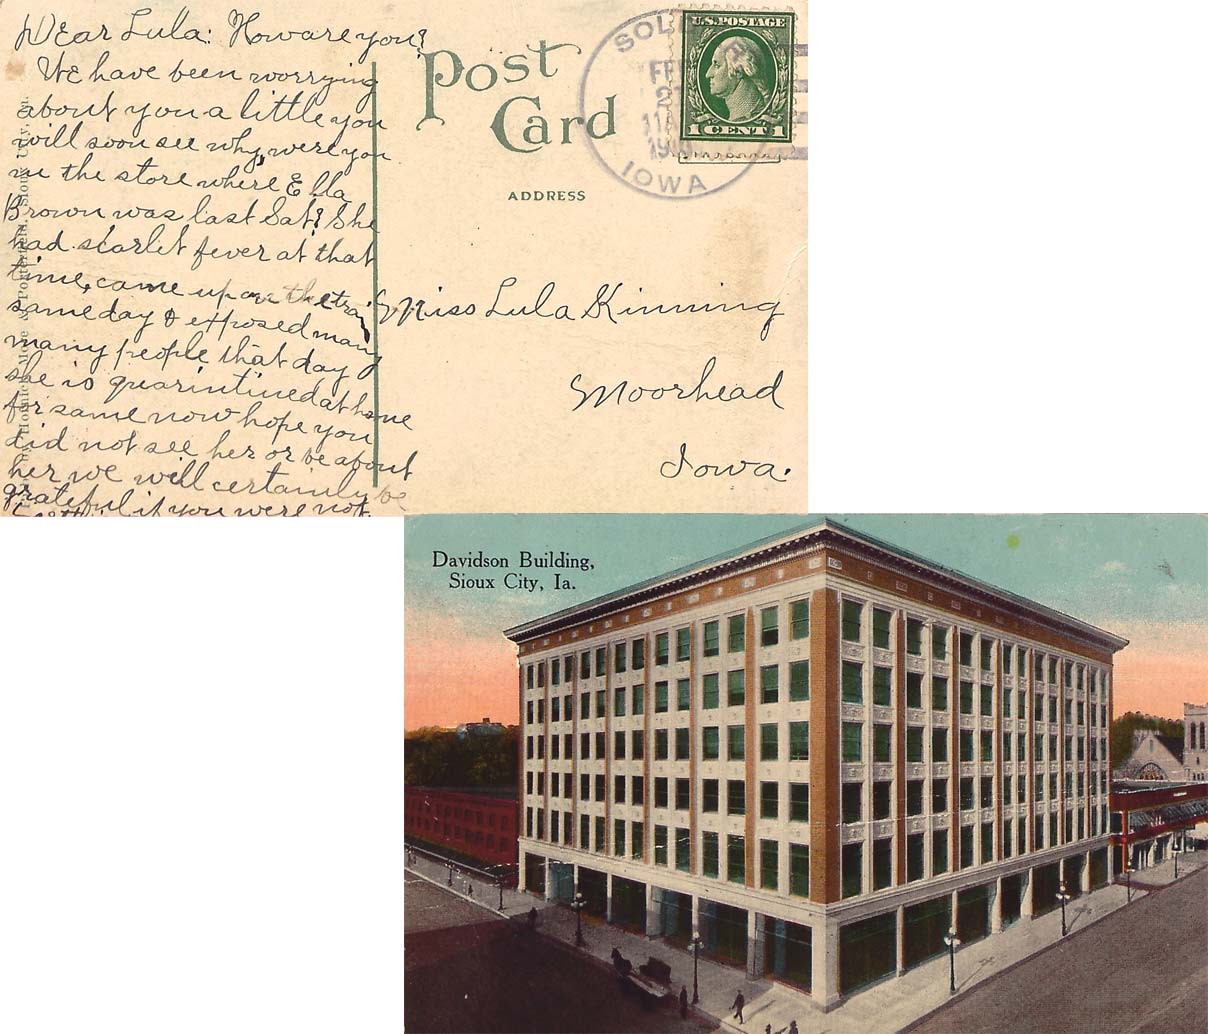 Dear Lula: How are you?
We have been worrying
about you a little you
will soon see why, were you
in the store where Ella
Brown was last Sat? She
had scarlit fever at that
time, came up on the train
same day & exposed many
many people that day
she is quarintined at home
for same now hope you
did not see her or be about
her we will certainly be
grateful if you were not.
Post
Card
ADDRESS
U.S. POSTAGE
1 CENT 1
IOWA
Miss Lula Kinning
Moorhead
Iowa.
Davidson Building,
Sioux City, Ia.